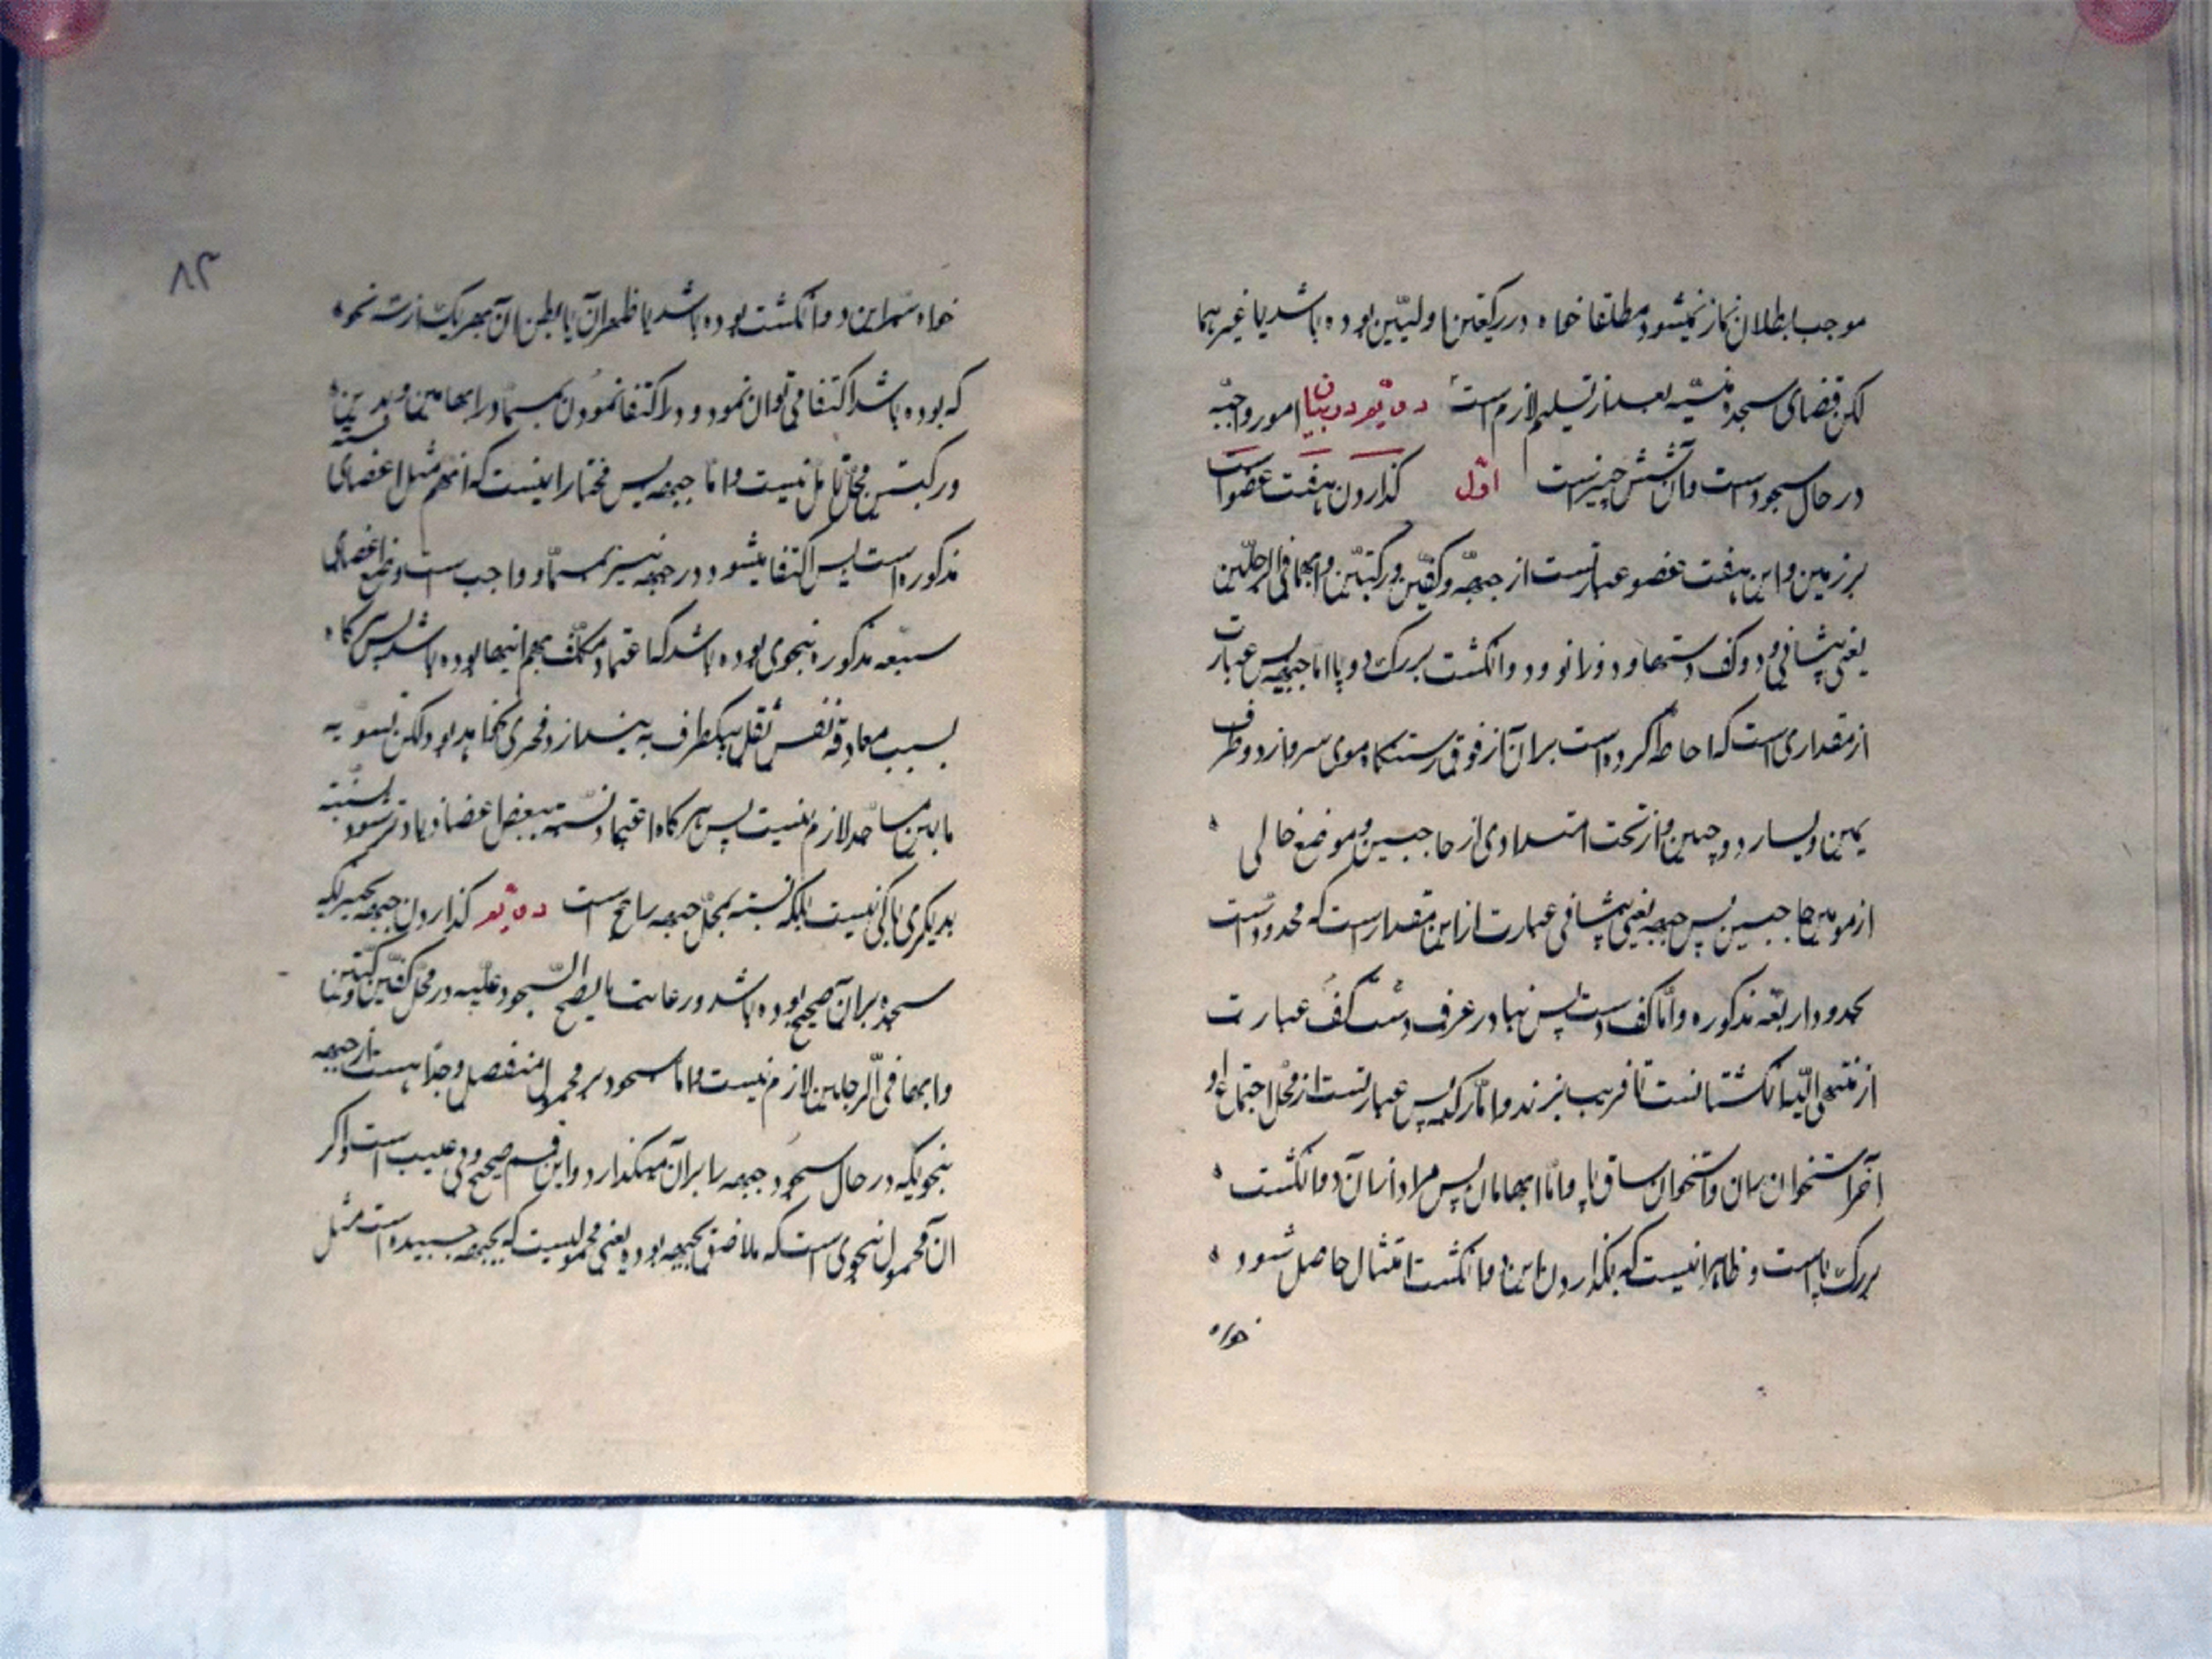 موجب بطلان نماز نمیشود مطلقا خواه در رکعتین اولیین بوده باشد یا غیرهما
لکن قضای سجده منسیّه بعد از تسلیم لازم است دویّم در بیان امور واجبه
در حال سجود است و آن شش چیز است اوّل گذاردن هفت عضو است
بر زمین و این هفت عضو عبارتست از جبهه و کفّین و رکبتین و ابهامی الرجلین
یعنی پیشانی و دو کف دستها و دو زانو و دو انگشت بزرک دو پا امّا جبهه پس عبارت
از مقداری است که احاطه کرده است بر آن از فوق رستنگاه موی سر و از دو طرف
یمین و یسار دو جبین و از تحت امتدادی از حاجبین و موضع خالی
از مو مابین حاجبین پس جبهه یعنی پیشانی عبارت از این مقدار است که محدود است
بحدود اربعه مذکوره و امّا کف دست پس تبادر عرف دست کف عبارت
از منتهی الیه انگشتانست تا قریب بزند و امّا رکبه پس عبارتست از محل اجتماع او
آخر استخوان ران و استخوان ساق پا و امّا ابهامان پس مراد از آن دو انگشت
بزرک پا است و ظاهر اینست که بگذاردن این دو انگشت امتثال حاصل شود
خواه
۸۳
خواه سر این دو انگشت بوده باشد یا ظهر آن یا بطن آن بهر یک از سه نحوه
که بوده باشد اکتفا می توان نمود و در اکتفا نمودن بمسمّا در ابهامین و یدین
و رکبتین محلّ تامّل نیست و امّا جبهه پس مختار اینست که آنهم مثل اعضای
مذکوره است پس اکتفا میشود در جبهه نیز بمسمّا و واجب است وضع اعضای
سبعه مذکوره بنحوی بوده باشد که اعتماد مکلّف بهم اینها بوده باشد پس هرگاه
بسبب نفس ثقل بیکطرف به بیندازد مجزی نخواهد بود لکن تسویه
مابین مساجد لازم نیست پس هرگاه اعتماد نسبت ببعض اعضا زیادتر شود نسبت
بدیگری باکی نیست بلکه نسبت بمحلّ جبهه راجح است دویّم گذاردن جبهه بچیزیکه
سجده بر آن صحیح بوده باشد و رعایت ما یصح السّجود علیه در محلّ کفّین و رکبتین
و ابهامی الرجلین لازم نیست و امّا سجود بر محمول منفصل و جدا هست از جبهه
بنحویکه در حال سجود جبهه را بر آن میگذارد و این قسم صحیح و بی عیب است و اگر
آن محمول بنحوی است که ملاصق بجبهه بوده یعنی محمولیست که بجبهه چسبیده است مثل